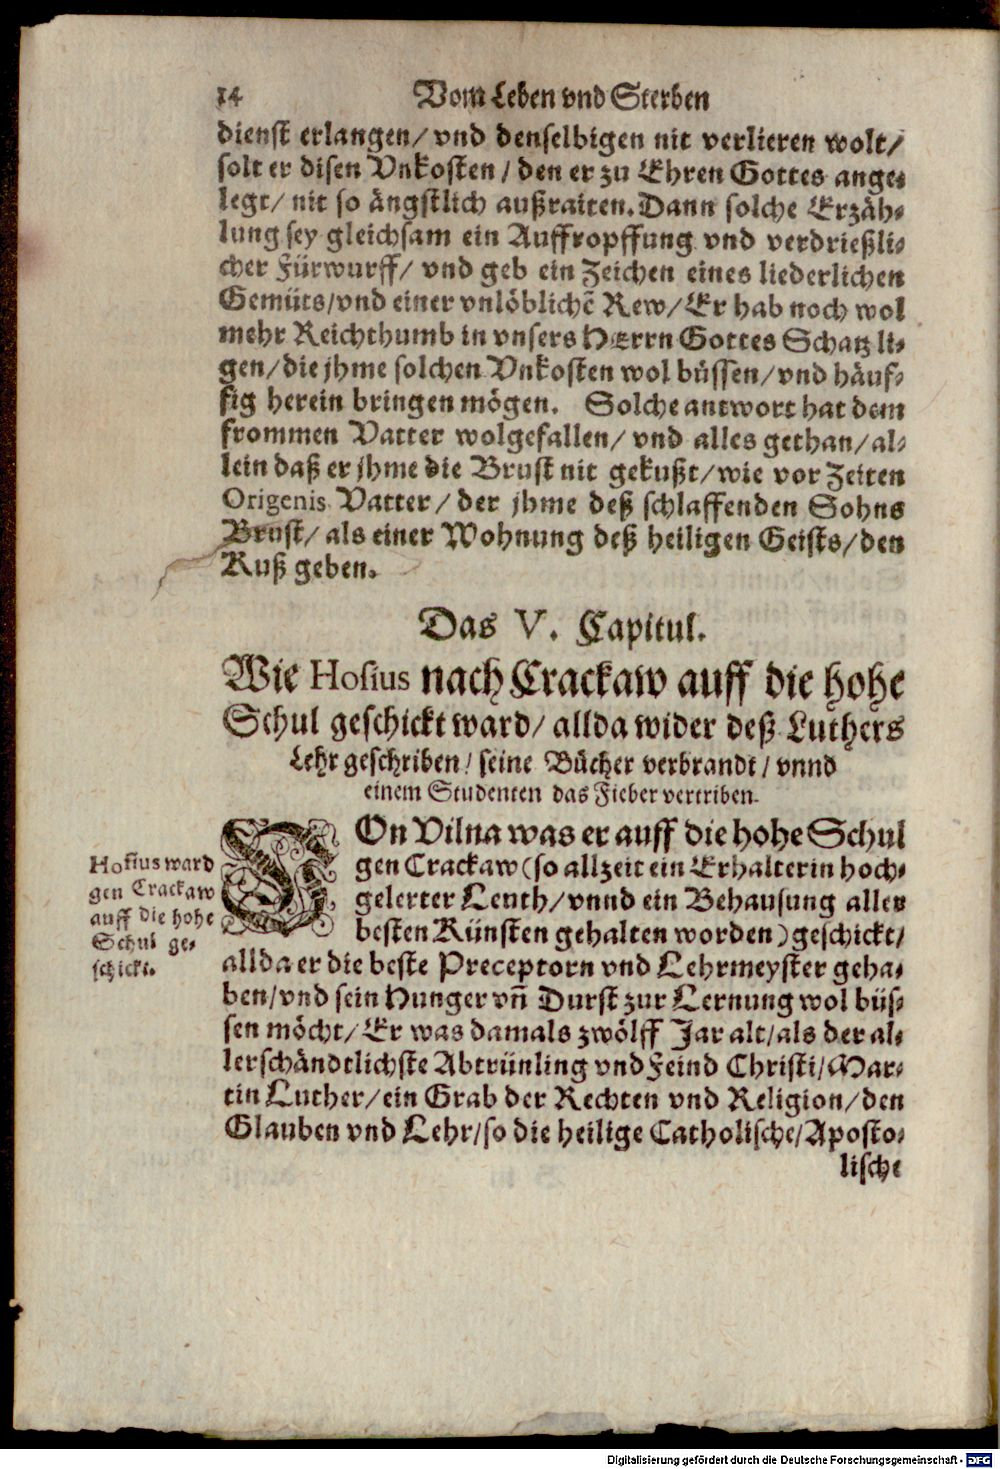 14 Vom Leben vnd Sterben
dienst erlangen/ vnd denselbigen nit verlieren wolt/
solt er disen Vnkosten / den er zu Ehren Gottes ange-
legt/ nit so ängstlich außraiten. Dann solche Erzäh-
lung sey gleichsam ein Auffropffung vnd verdrießli-
cher Fürwurff/ vnd geb ein Zeichen eines liederlichen
Gemüts/vnd einer vnlöblichẽ Rew/ Er hab noch wol
mehr Reichthumb in vnsers HErrn Gottes Schatz li-
gen/ die jhme solchen Vnkosten wol büssen/ vnd häuf-
fig herein bringen mögen. Solche antwort hat dem
frommen Vatter wolgefallen/ vnd alles gethan/ al-
lein daß er jhme die Brust nit gekußt/ wie vor Zeiten
Origenis Vatter / der jhme deß schlaffenden Sohns
Brust/ als einer Wohnung deß heiligen Geists/ den
Kuß geben.
Das V. Capitul.
Wie Hosius nach Crackaw auff die hohe
Schul geschickt ward/ allda wider deß Luthers
Lehr geschriben/ seine Bücher verbrandt/ vnnd
einem Studenten das Fieber vertriben.
VOn Vilna was er auff die hohe Schul
gen Crackaw (so allzeit ein Erhalterin hoch-
gelerter Leuth/ vnnd ein Behausung aller
besten Künsten gehalten worden) geschickt/
allda er die beste Preceptorn vnd Lehrmeyster geha-
ben/ vnd sein Hunger vñ Durst zur Lernung wol büs-
sen möcht/ Er was damals zwölff Jar alt/ als der al-
lerschändtlichste Abtrünling vnd Feind Christi/ Mar-
tin Luther/ ein Grab der Rechten vnd Religion/ den
Glauben vnd Lehr/ so die heilige Catholische/ Aposto-
lische
Hosius ward
gen Crackaw
auff die hohe
Schul ge-
schickt.
Digitalisierung gefördert durch die Deutsche Forschungsgemeinschaft - DFG